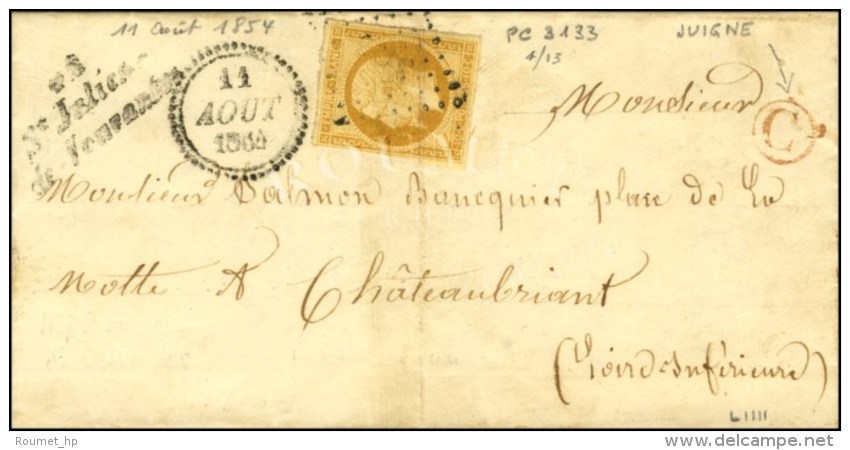 11 août 1854
PC 3133
1/13
JUIGNE
St Julien
de Vouvantes
11
AOUT
1854
EMPIRE FRANC
C
Monsieur
Monsieur Valmon Bancquier place de la
Motte A Châteaubriant
(Loire Inférieure)
LIIII
Roumet_hp
www.delcampe.net